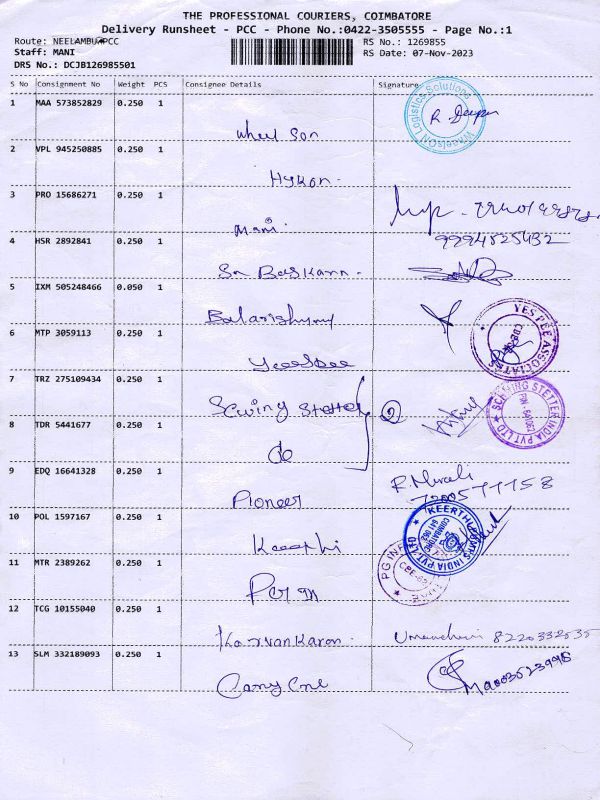 THE PROFESSIONAL COURIERS, COIMBATORE
Delivery Runsheet - PCC - Phone No.:0422-3505555 - Page No.:1
Route: NEELAMBUR PCC
RS No.: 1269855
Staff: MANI
RS Date: 07-Nov-2023
DRS No.: DCJB126985501
S No Consignment No Weight PCS Consignee Details Signature
1 MAA 573852829 0.250 1
Wheel Son
R. Deepan
WheelsON Logistics Solutions
2 VPL 945250885 0.250 1
Hykon.
3 PRO 15686271 0.250 1
Mani.
9994525432
4 HSR 2892841 0.250 1
Sn Baskarn.
5 IXM 505248466 0.050 1
6 MTP 3059113 0.250 1
YES PEE ASSOCIATES
7 TRZ 275109434 0.250 1
Scwing Stetter
2
SCHWING STETTER INDIA PVT LTD
8 TDR 5441677 0.250 1
do
9 EDQ 16641328 0.250 1
Pioneer
R. Murali
7200577758
10 POL 1597167 0.250 1
Keerthi
COIMBATORE
11 MTR 2389262 0.250 1
12 TCG 10155040 0.250 1
8220332535
13 SLM 332189093 0.250 1